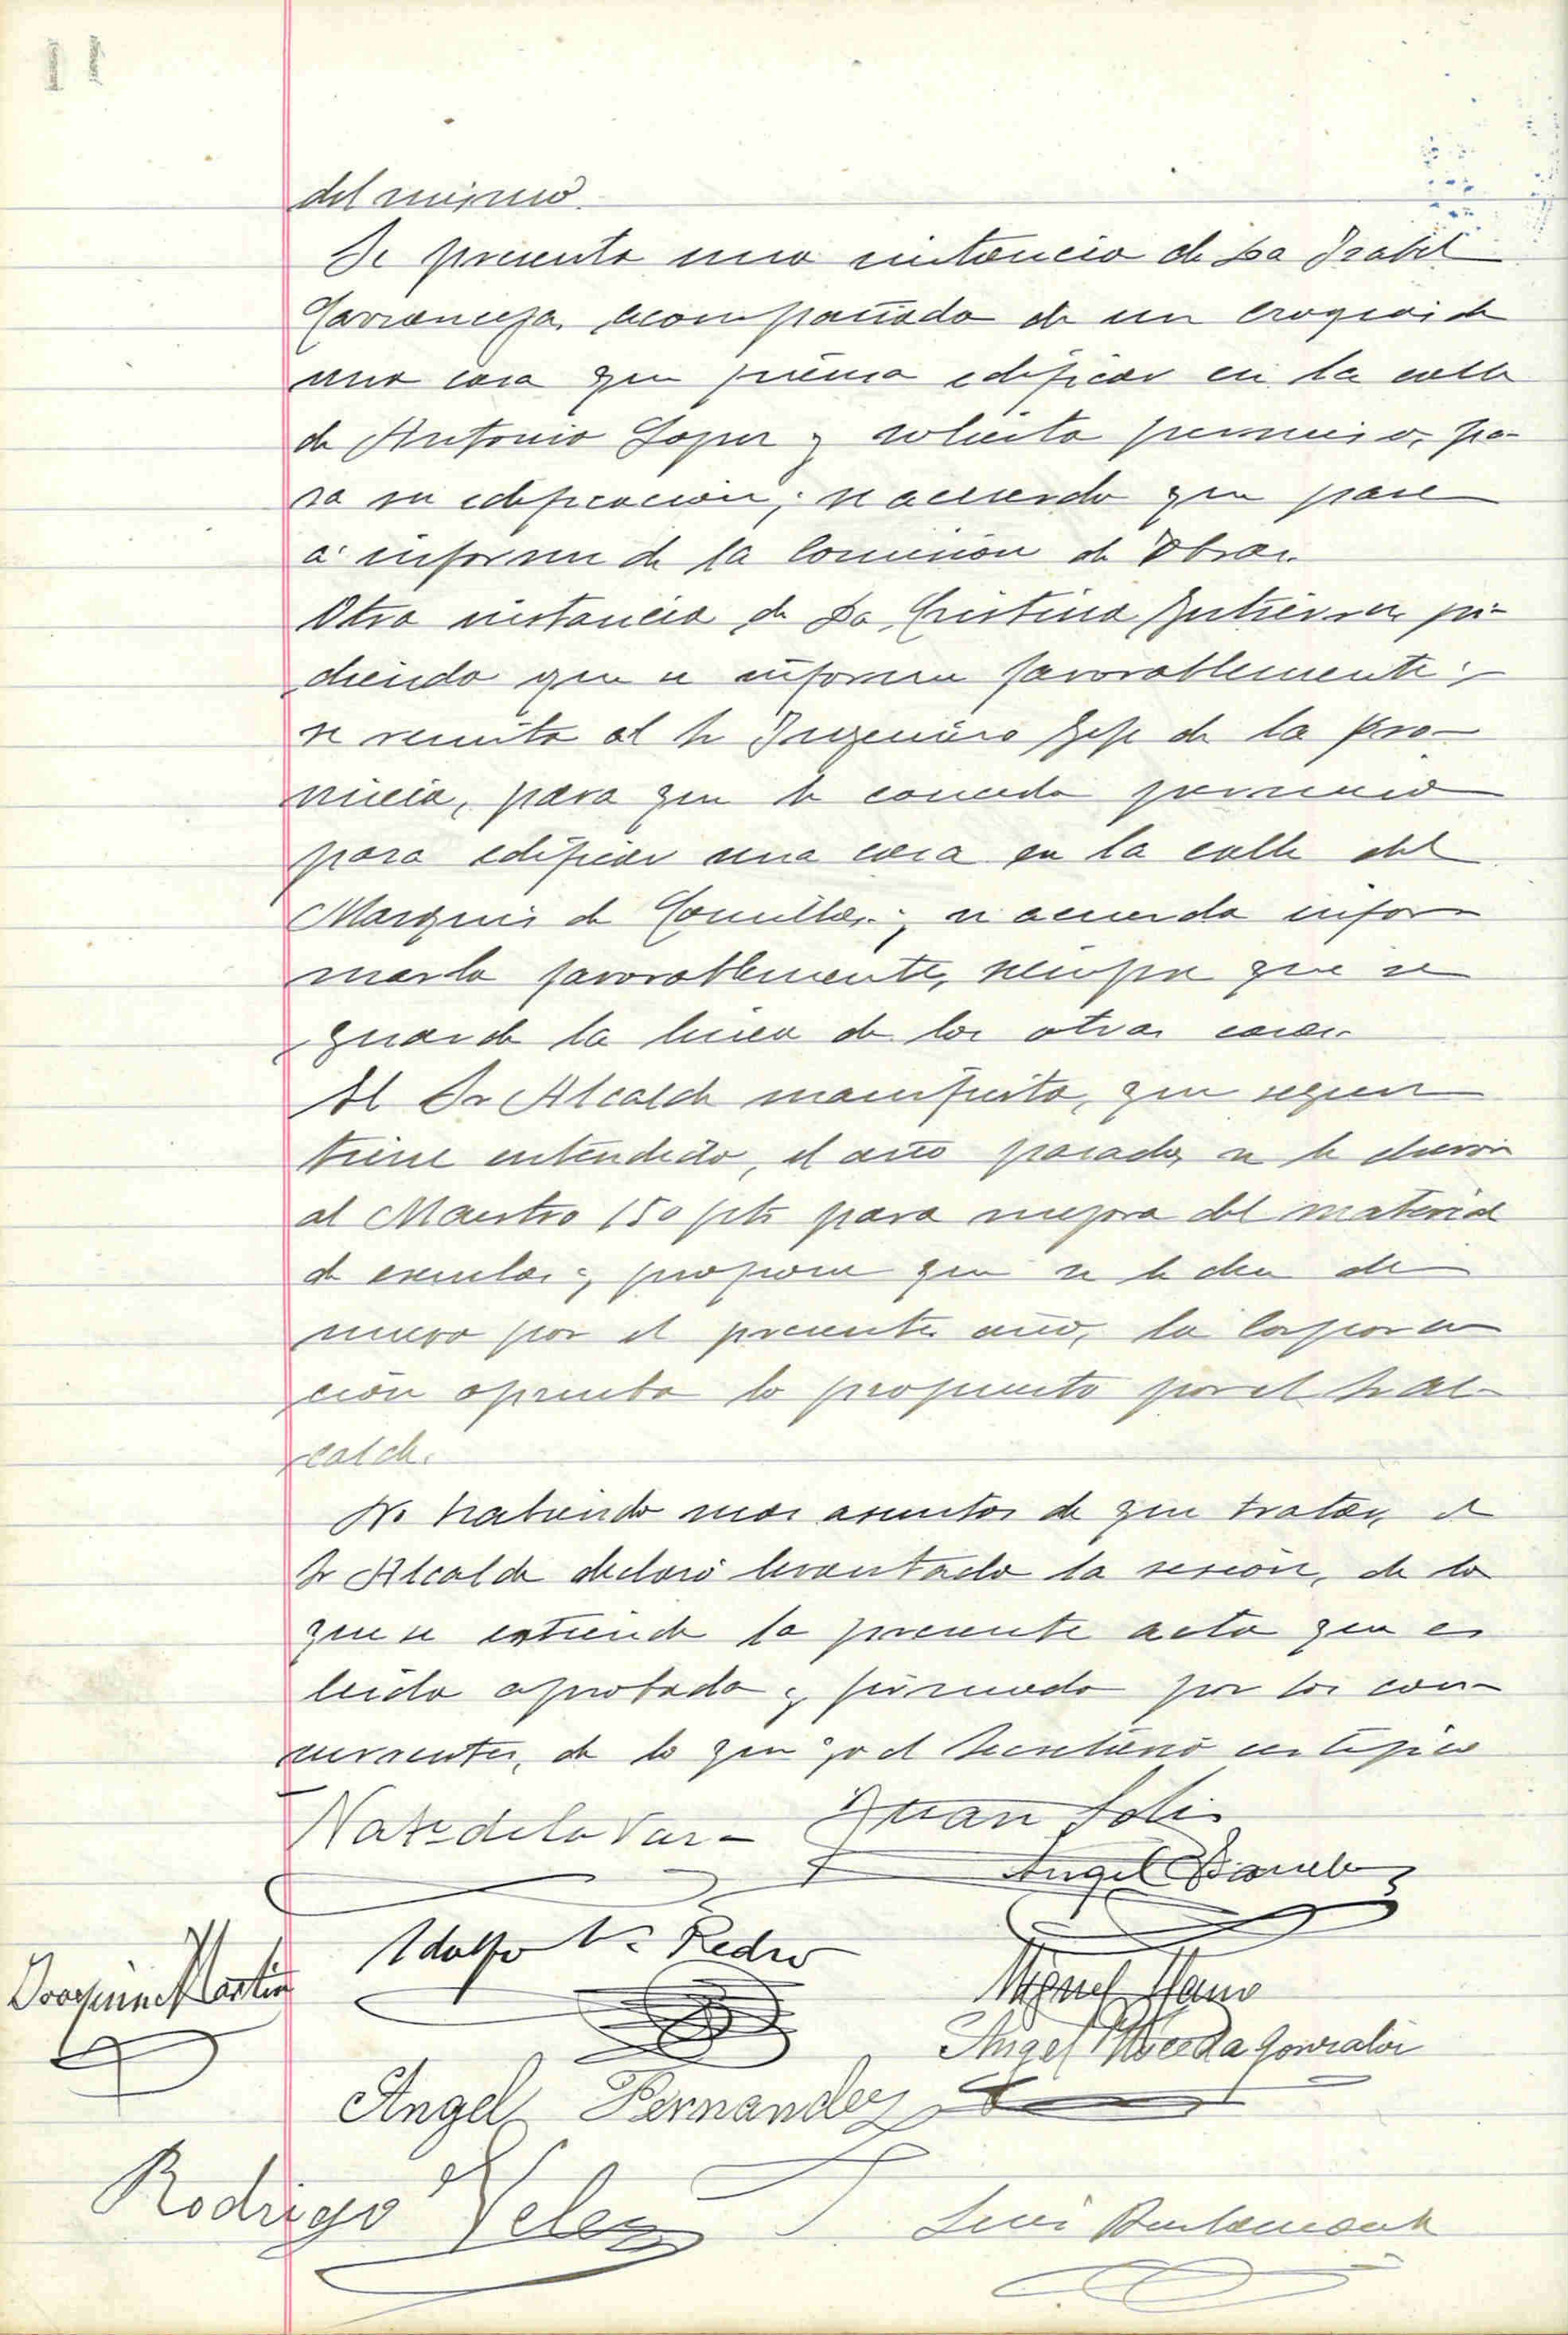 del mismo.
Se presenta una instancia de Da Isabel
Carranceja, acompañada de un croquis de
una casa que piensa edificar en la calle
de Antonio Lopez y solicita permiso, pa-
ra su edificacion; se acuerda que pase
a informe de la Comision de Obras.
Otra instancia de Da Cristina Gutierrez pi-
diendo que se informe favorablemente y
se remita al Sr Ingeniero Jefe de la pro-
vincia, para que le conceda permiso
para edificar una casa en la calle del
Marques de Comillas; se acuerda infor-
marla favorablemente, siempre que se
guarde la linea de las otras casas.
El Sr Alcalde manifiesta, que segun
tiene entendido, el año pasado, se le dieron
al Maestro 150 pts para mejora del material
de escuelas; propone que se le den de
nuevo por el presente año, la Corpora
ción aprueba lo propuesto por el Sr Al-
calde.
No habiendo mas asuntos de que tratar, el
Sr Alcalde declaró levantada la sesión, de la
que se extiende la presente acta que es
leida aprobada y firmada por los con-
currentes, de lo que yo el Secretario certifico
Juan Solis
Angel
Adolfo Vz Pedro
Joaquin Martin
Miguel Llano
Angel Noceda Gonzalez
Angel Fernandez
Rodrigo Velez
Luis Bustamante